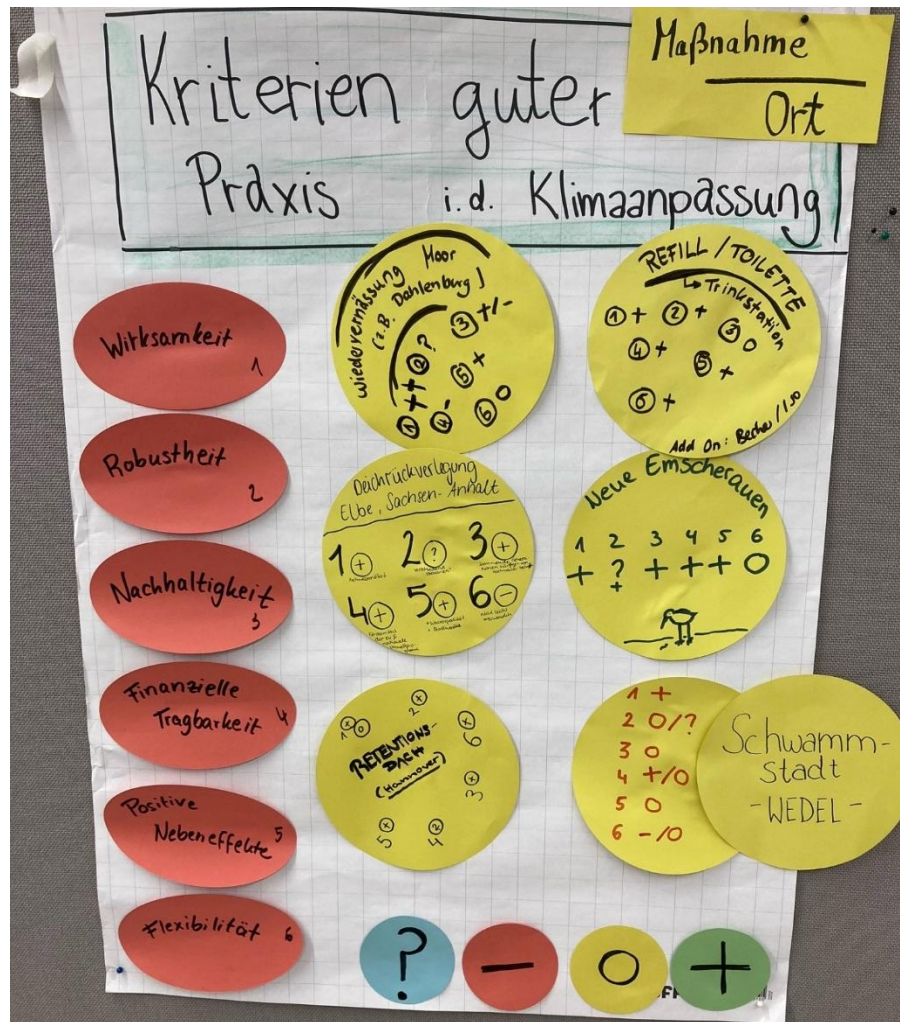 Maßnahme
Ort
Kriterien guter
Praxis i.d. Klimaanpassung
Wirksamkeit
1
Robustheit
2
Nachhaltigkeit
3
Finanzielle
Tragbarkeit 4
Positive
Nebeneffekte 5
Flexibilität 6
Wiedervernässung Moor
(z.B. Dahlenburg)
① ++ ② ? ③ +/-
④ - ⑤ + ⑥ O
REFILL / TOILETTE
↳ Trinkstation
① + ② + ③ O
④ + ⑤ +
⑥ +
Add On: Becher /
Deichrückverlegung
Elbe, Sachsen-Anhalt
1 + 2 ? 3 +
4 + 5 + 6 -
Neue Emscherauen
1 2 3 4 5 6
+ ? + + + O
+
RETENTIONS-
DACH
(Hannover)
1 +
2 O/?
3 O
4 +/O
5 O
6 -/O
Schwamm-
stadt
- WEDEL -
? - O +